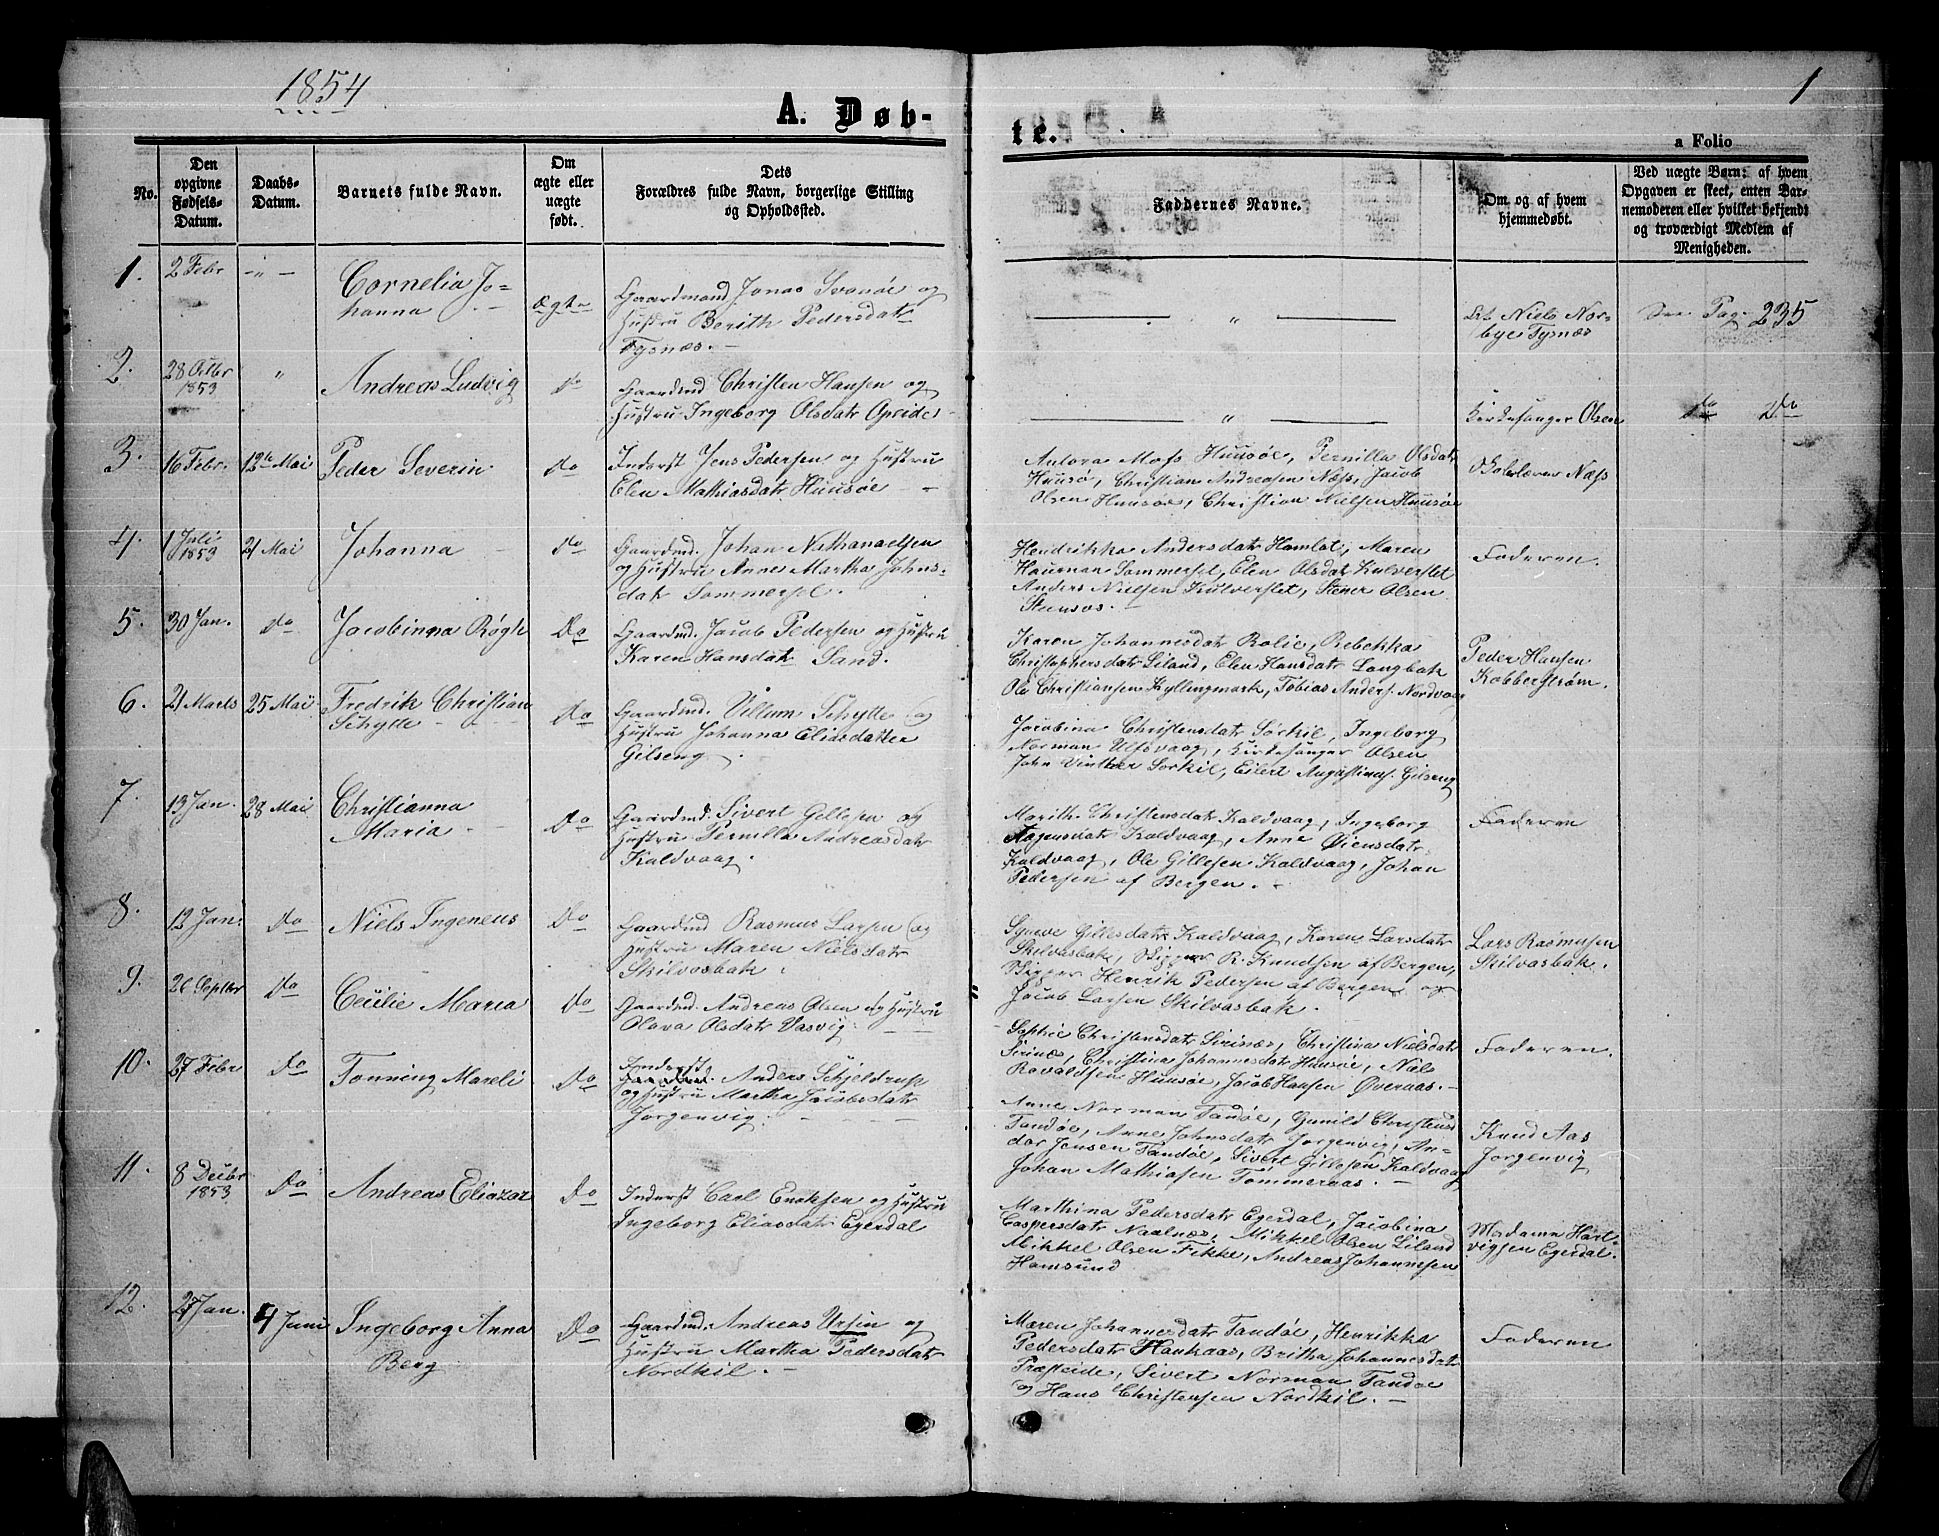 1854
1
A. Døb-
te.
a Folio
No.
Den
opgivne
Fødsels-
Datum.
Daabs-
Datum.
Barnets fulde Navn.
Om
ægte eller
uægte
født.
Dets
Forældres fulde Navn, borgerlige Stilling
og Opholdssted.
Faddernes Navne.
Om og af hvem
hjemmedøbt.
Ved uægte Børn: af hvem
Opgaven er skeet, enten Bar-
nemoderen eller hvilket bekjendt
og troværdigt Medlem af
Menigheden.
1.
2 Febr
- " -
Cornelia Jo-
hanna
ægte
Gaardmand Jonas Svanøe og
Hustru Berith Pedersdatr
Tysnæs.
"
Niels Nor-
bye Tysnæs
Pag. 235
2.
28 Octbr
1853
"
Andreas Ludvig
do
Gaardmd Christen Hansen og
Hustru Ingeborg Olsdatr Opeide
"
Kirkesanger Olsen
do Do
3.
16 Febr.
12te Mai
Peder Severin
do
Inderst Jens Pedersen og Hustru
Elen Mathiasdatr Huusøe
Aulora Moss Huusøe, Pernilla Olsdatr
Huusø, Christian Andreasen Næss, Jacob
Olsen Huusøe, Christian Nielsen Huusøe
Skolelærer Næss
4.
1 Juli
1853
21 Mai
Johanna
do
Gaardmd. Johan Nathanaelsen
og Hustru Anne Martha Johns-
datr Sommersel.
Hendrikka Andersdatr Hamlot, Maren
Hausnan Sommersel, Elen Olsdatr Kulverslet
Anders Nielsen Kulverslet, Stener Olsen
Stensøs.
Faderen.
5.
30 Jan.
do
Jacobinna Røgh
Do
Gaardmd. Jacob Pedersen og Hustru
Karen Hansdatr Sand.
Karen Johannesdatr Rolie, Rebekka
Christophersdatr Liland, Elen Hansdatr Langbak
Ole Christiansen Kyllingmark, Tobias Anders. Nordvaag
Peder Hansen
Kobberstrøm.
6.
21 Marts
25 Mai
Fredrik Christian
Schytte
Do
Gaardmd. Villum Schytte og
Hustru Johanna Eliasdatter
Gilseng
Jacobina Christensdatr Sørkil, Ingeborg
Norman Ulfsvaag, Kirkesanger Olsen
John Vinther Sorkil, Eilert Augustinus. Gilseng
7.
13 Jan.
28 Mai
Christianna
Maria
Do
Gaardmd. Sivert Gillesen og
Hustru Pernilla Andreasdatr
Kaldvaag.
Marith Christensdatr Kaldvaag, Ingeborg
Aagensdatr Kaldvaag, Anne Øiensdatr
Kaldvaag, Ole Gillesen Kaldvaag, Johan
Pedersen af Bergen.
Faderen
8.
12 Jan.
Do
Niels Ingeneus
Do
Gaardmd Rasmus Larsen og
Hustru Maren Nielsdatr
Skilvasbak.
Synøve Gillesdatr Kaldvaag, Karen Larsdatr
Skilvasbak, Skipper R. Knudsen af Bergen,
Skipper Henrik Pedersen af Bergen og
Jacob Larsen Skilvasbak.
Lars Rasmusen
Skilvasbak.
9.
26 Septbr
Do
Cecilie Maria
Do
Gaardmd. Andreas Olsen og Hustru
Olava Olsdatr Vasvig
Sophie Christensdatr Sirinæs, Christina Nielsdatr
Sirinæs, Christina Johannesdatr Huusøe, Niels
Ravaldsen Huusøe, Jacob Hansen Øvernaas.
Faderen.
10.
27 Febr
Do
Tonning Mareli
Do
Inderst
Gaardmd. Anders Schjeldrup
og Hustru Martha Jacobsdatr
Jorgenvig.
Anne Norman Tandøe, Gunild Christensd
Tandøe, Anne Johnsdatr Jorgenvig, An-
dor Jensen Tandøe, Sivert Gillesen Kaldvaag
Johan Mathiasen Tømmeraas.
Knud Aas
Jorgenvig
11.
8 Decbr
1853
Do
Andreas Eliazar
Do
Inderst Carl Enoksen og Hustru
Ingeborg Eliasdatr Egerdal
Marthina Pedersdatr Egerdal, Jacobina
Caspersdatr Naalnæs, Mikkel Olsen Liland
Mikkel Olsen Fikke, Andreas Johannesen
Hamsund
Madame Hart-
vigsen Egerdal.
12.
27 Jan.
4 Juni
Ingeborg Anna
Berg
Do
Gaardmd. Andreas Ursin og
Hustru Martha Pedersdatr
Nordkil.
Maren Johannesdatr Tandøe, Henrikka
Pedersdatr Haukaas, Britha Johannesdatr
Præsteide, Sivert Norman Tandøe
og Hans Christensen Nordkil.
Faderen